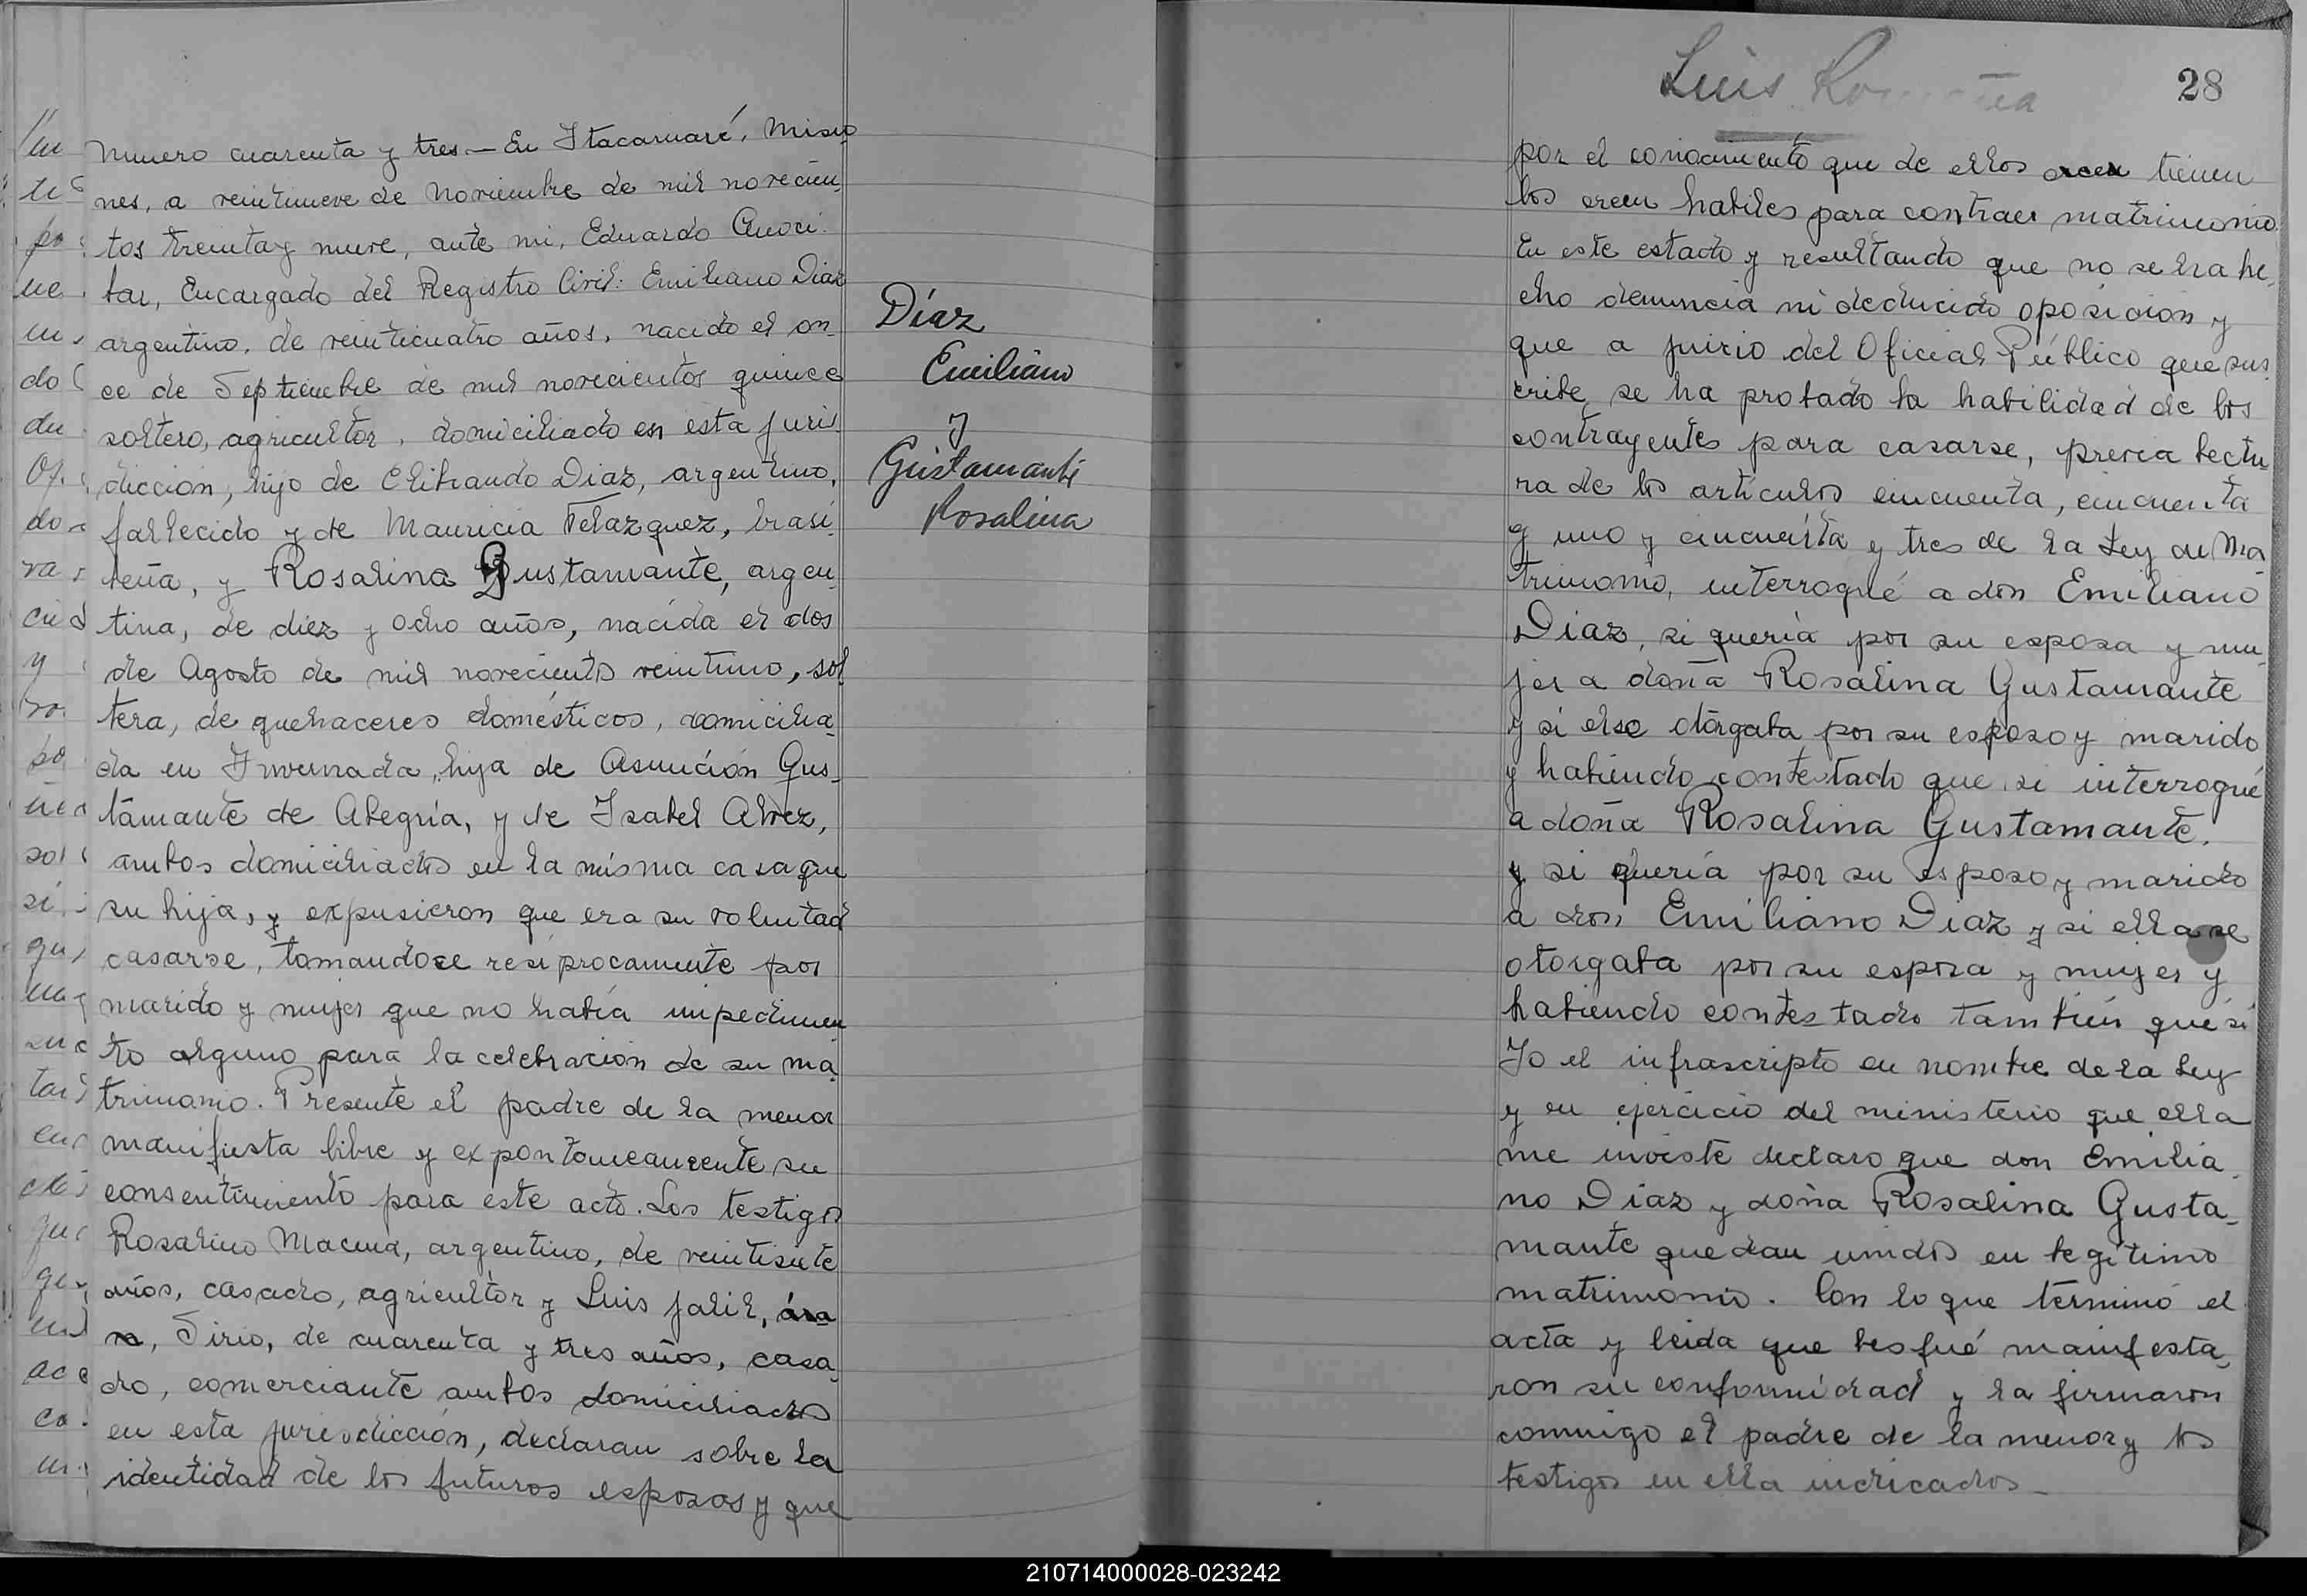 Numero cuarenta y tres — En Itacaruaré, Misio
nes, a veintinueve de Noviembre de mil novecien
tos treinta y nueve, ante mi, Eduardo
tar, Encargado del Registro Civil: Emiliano Diaz
argentino, de veinticuatro años, nacido el on
ce de Septiembre de mil novecientos quince
soltero, agricultor, domiciliado en esta juris
dicción, hijo de Diaz, argentino,
fallecido y de Mauricia Velazquez, brasi
leña, y Rosalina Gustamante, argen
tina, de diez y ocho años, nacida el dos
de Agosto de mil novecientos veintiuno, sol
tera, de quehaceres domésticos, domicilia
da en Invernada, hija de Asunción Gus
tamante de Alegría, y de Isabel Alvez,
ambos domiciliados en la misma casa que
su hija, y expusieron que era su voluntad
casarse, tomandose resiprocamente por
marido y mujer que no había impedimen
to alguno para la celebración de su ma
trimonio. Presente el padre de la menor
manifiesta libre y expontaneamente su
consentimiento para este acto. Los testigos
Rosalino argentino, de veintisiete
años, casado, agricultor y Luis Jalil,
Sirio, de cuarenta y tres años, casa
do, comerciante ambos domiciliados
en esta jurisdicción, declaran sobre la
identidad de los futuros esposos y que
Díaz
Emiliano
y
Gustamante
Rosalina
Luis
28
por el conocimiento que de ellos tienen
los creen habiles para contraer matrimonio.
En este estado y resultando que no se ha he
cho denuncia ni deducido oposición y
que a juicio del Oficial Público que sus
cribe se ha probado la habilidad de los
contrayentes para casarse, previa lectu
ra de los artículos cincuenta, cincuenta
y uno y cincuenta y tres de la Ley de Ma
trimonio, interrogué a don Emiliano
Diaz, si quería por su esposa y mu
jer a doña Rosalina Gustamante
y si el se otorgaba por su esposo y marido
y habiendo contestado que si interrogué
a doña Rosalina Gustamante.
y si quería por su esposo y marido
a don Emiliano Diaz y si ella se
otorgaba por su esposa y mujer y
habiendo contestado también que si
Yo el infrascripto en nombre de la Ley
y en ejercicio del ministerio que ella
me inviste declaro que don Emilia
no Diaz y doña Rosalina Gusta
mante quedan unidos en legítimo
matrimonio. Con lo que terminó el
acta y leida que les fué manifesta
ron su conformidad y la firmaron
conmigo el padre de la menor y los
testigos en ella indicados
210714000028-023242